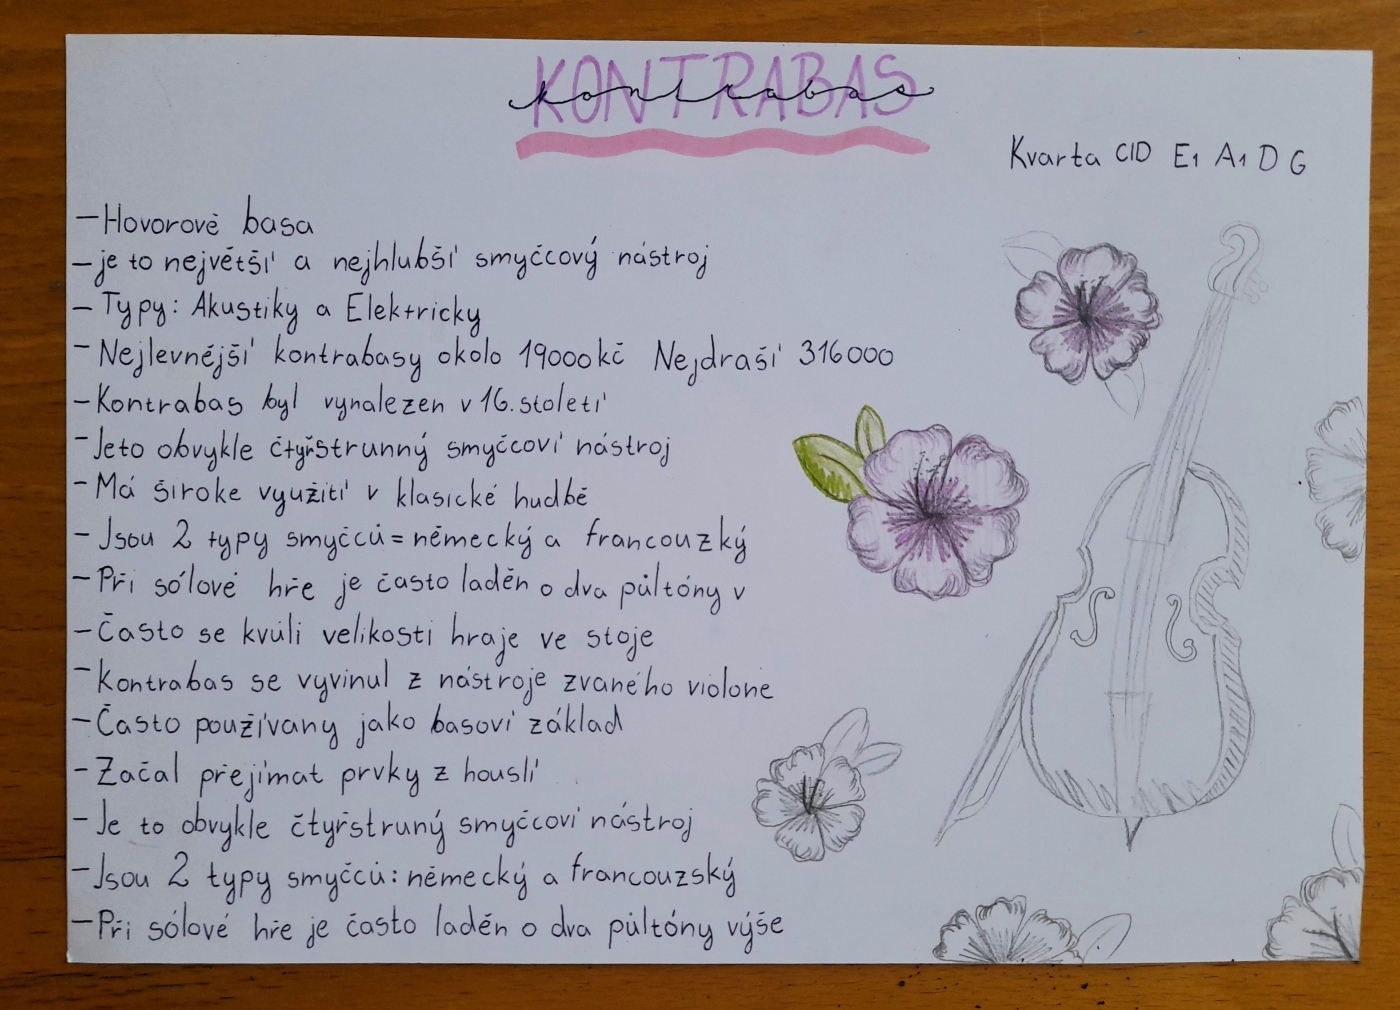 KONTRABAS
kontrabas
Kvarta CID E1 A1 D G
– Hovorově basa
– je to největší a nejhlubší smyčcový nástroj
– Typy: Akustiky a Elektricky
– Nejlevnější kontrabasy okolo 19000kč Nejdraší 316000
– Kontrabas byl vynalezen v 16. století
– Jeto obvykle čtyřstrunný smyčcoví nástroj
– Má široke využití v klasické hudbě
– Jsou 2 typy smyčců = německý a francouzký
– Při sólové hře je často laděn o dva půltóny v
– Často se kvůli velikosti hraje ve stoje
– Kontrabas se vyvinul z nástroje zvaného violone
– Často používany jako basoví základ
– Začal přejímat prvky z houslí
– Je to obvykle čtyřstruný smyčcoví nástroj
– Jsou 2 typy smyčců: německý a francouzský
– Při sólové hře je často laděn o dva půltóny výše